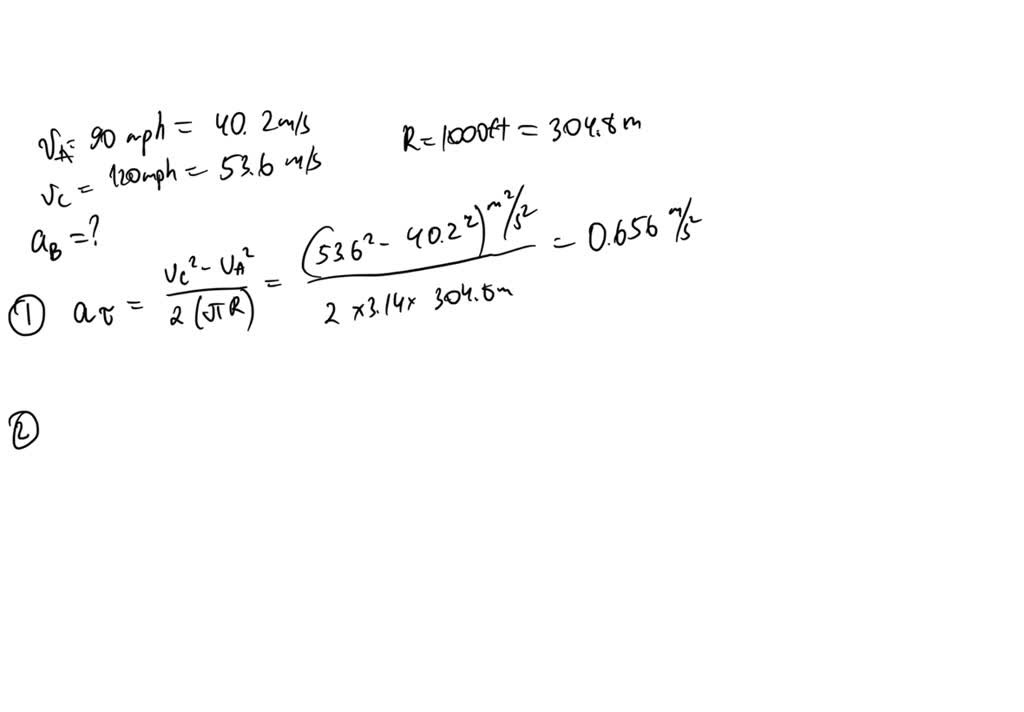 V_A = 90 mph = 40.2 m/s
R = 1000ft = 304.8 m
V_C = 120 mph = 53.6 m/s
a_B = ?
① a_τ = (V_C² - V_A²) / (2(πR)) = (53.6² - 40.2²) m²/s² / (2 × 3.14 × 304.8m) = 0.656 m/s²
②